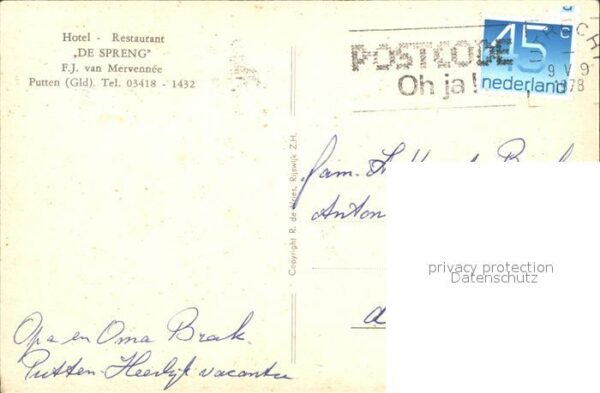 Hotel - Restaurant
„DE SPRENG"
F.J. van Mervennée
Putten (Gld) Tel. 03418 - 1432
POSTCODE
Oh ja!
45 c
nederland
9 V 9
1978
Copyright R. de Vries, Rijswijk Z.H.
Fam.
Anton
privacy protection
Datenschutz
Opa en Oma Brak.
Putten - Heerlijk vacantie